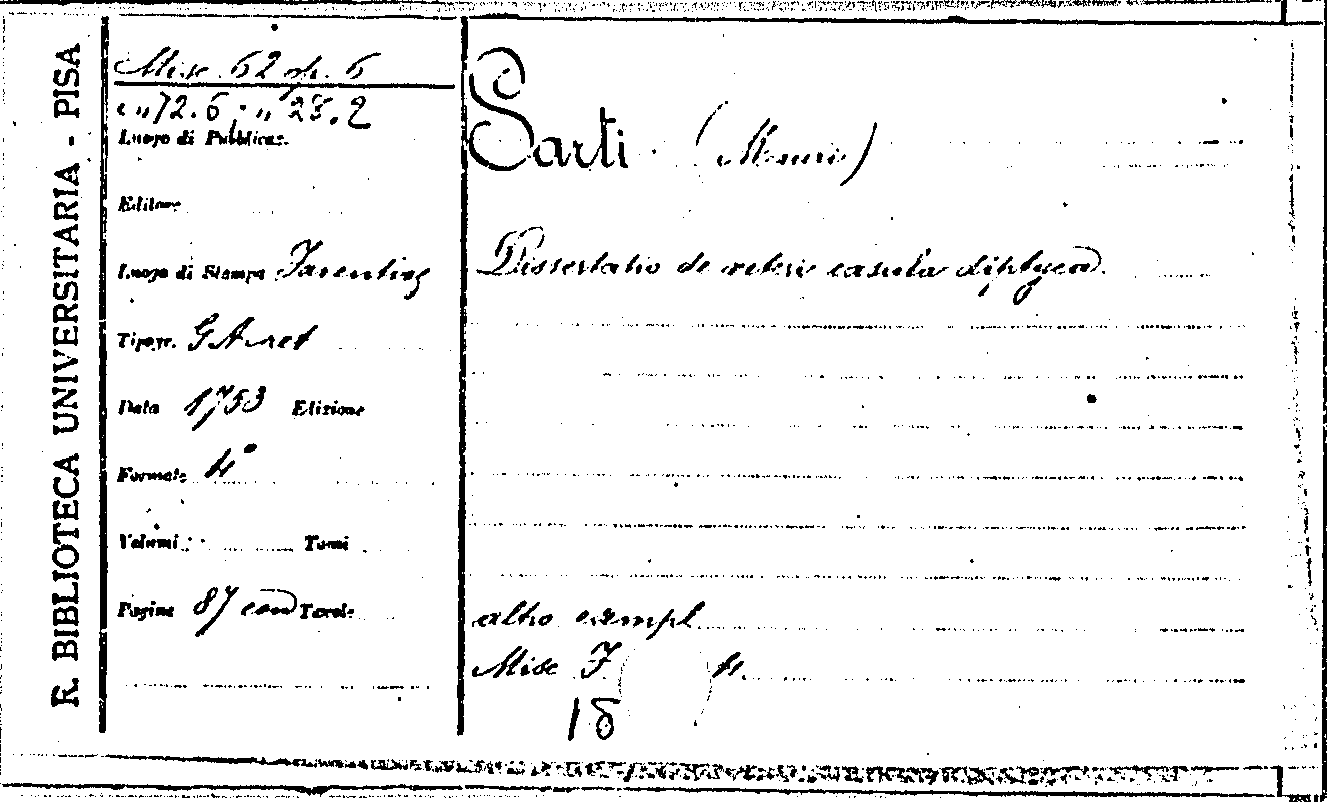 R. BIBLIOTECA UNIVERSITARIA - PISA
Misc. 62 op. 6
e n 72. 6; n 28. 2
Luogo di Pubblicaz.
Editore
Luogo di Stampa Faventiae
Tipogr.
Data 1753 Edizione
Formato 4°
Volumi Tomi
Pagine 87 con Tavole
Sarti (Mauri)
Dissertatio de veteri casula diptyca
altro exempl
Misc F. 4.
18